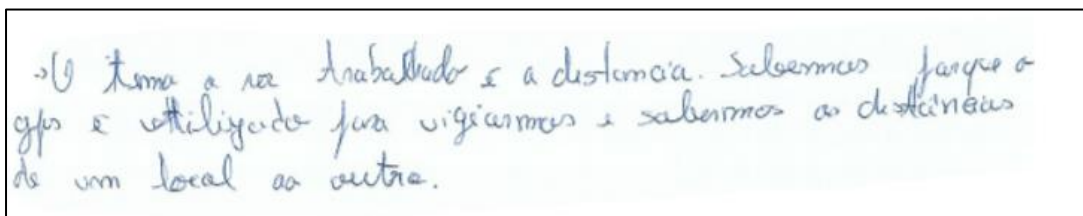 →O tema a ser trabalhado é a distancia. Sabemos porque o
gps é utilizado para vigiarmos e sabermos as distâncias
de um local ao outro.